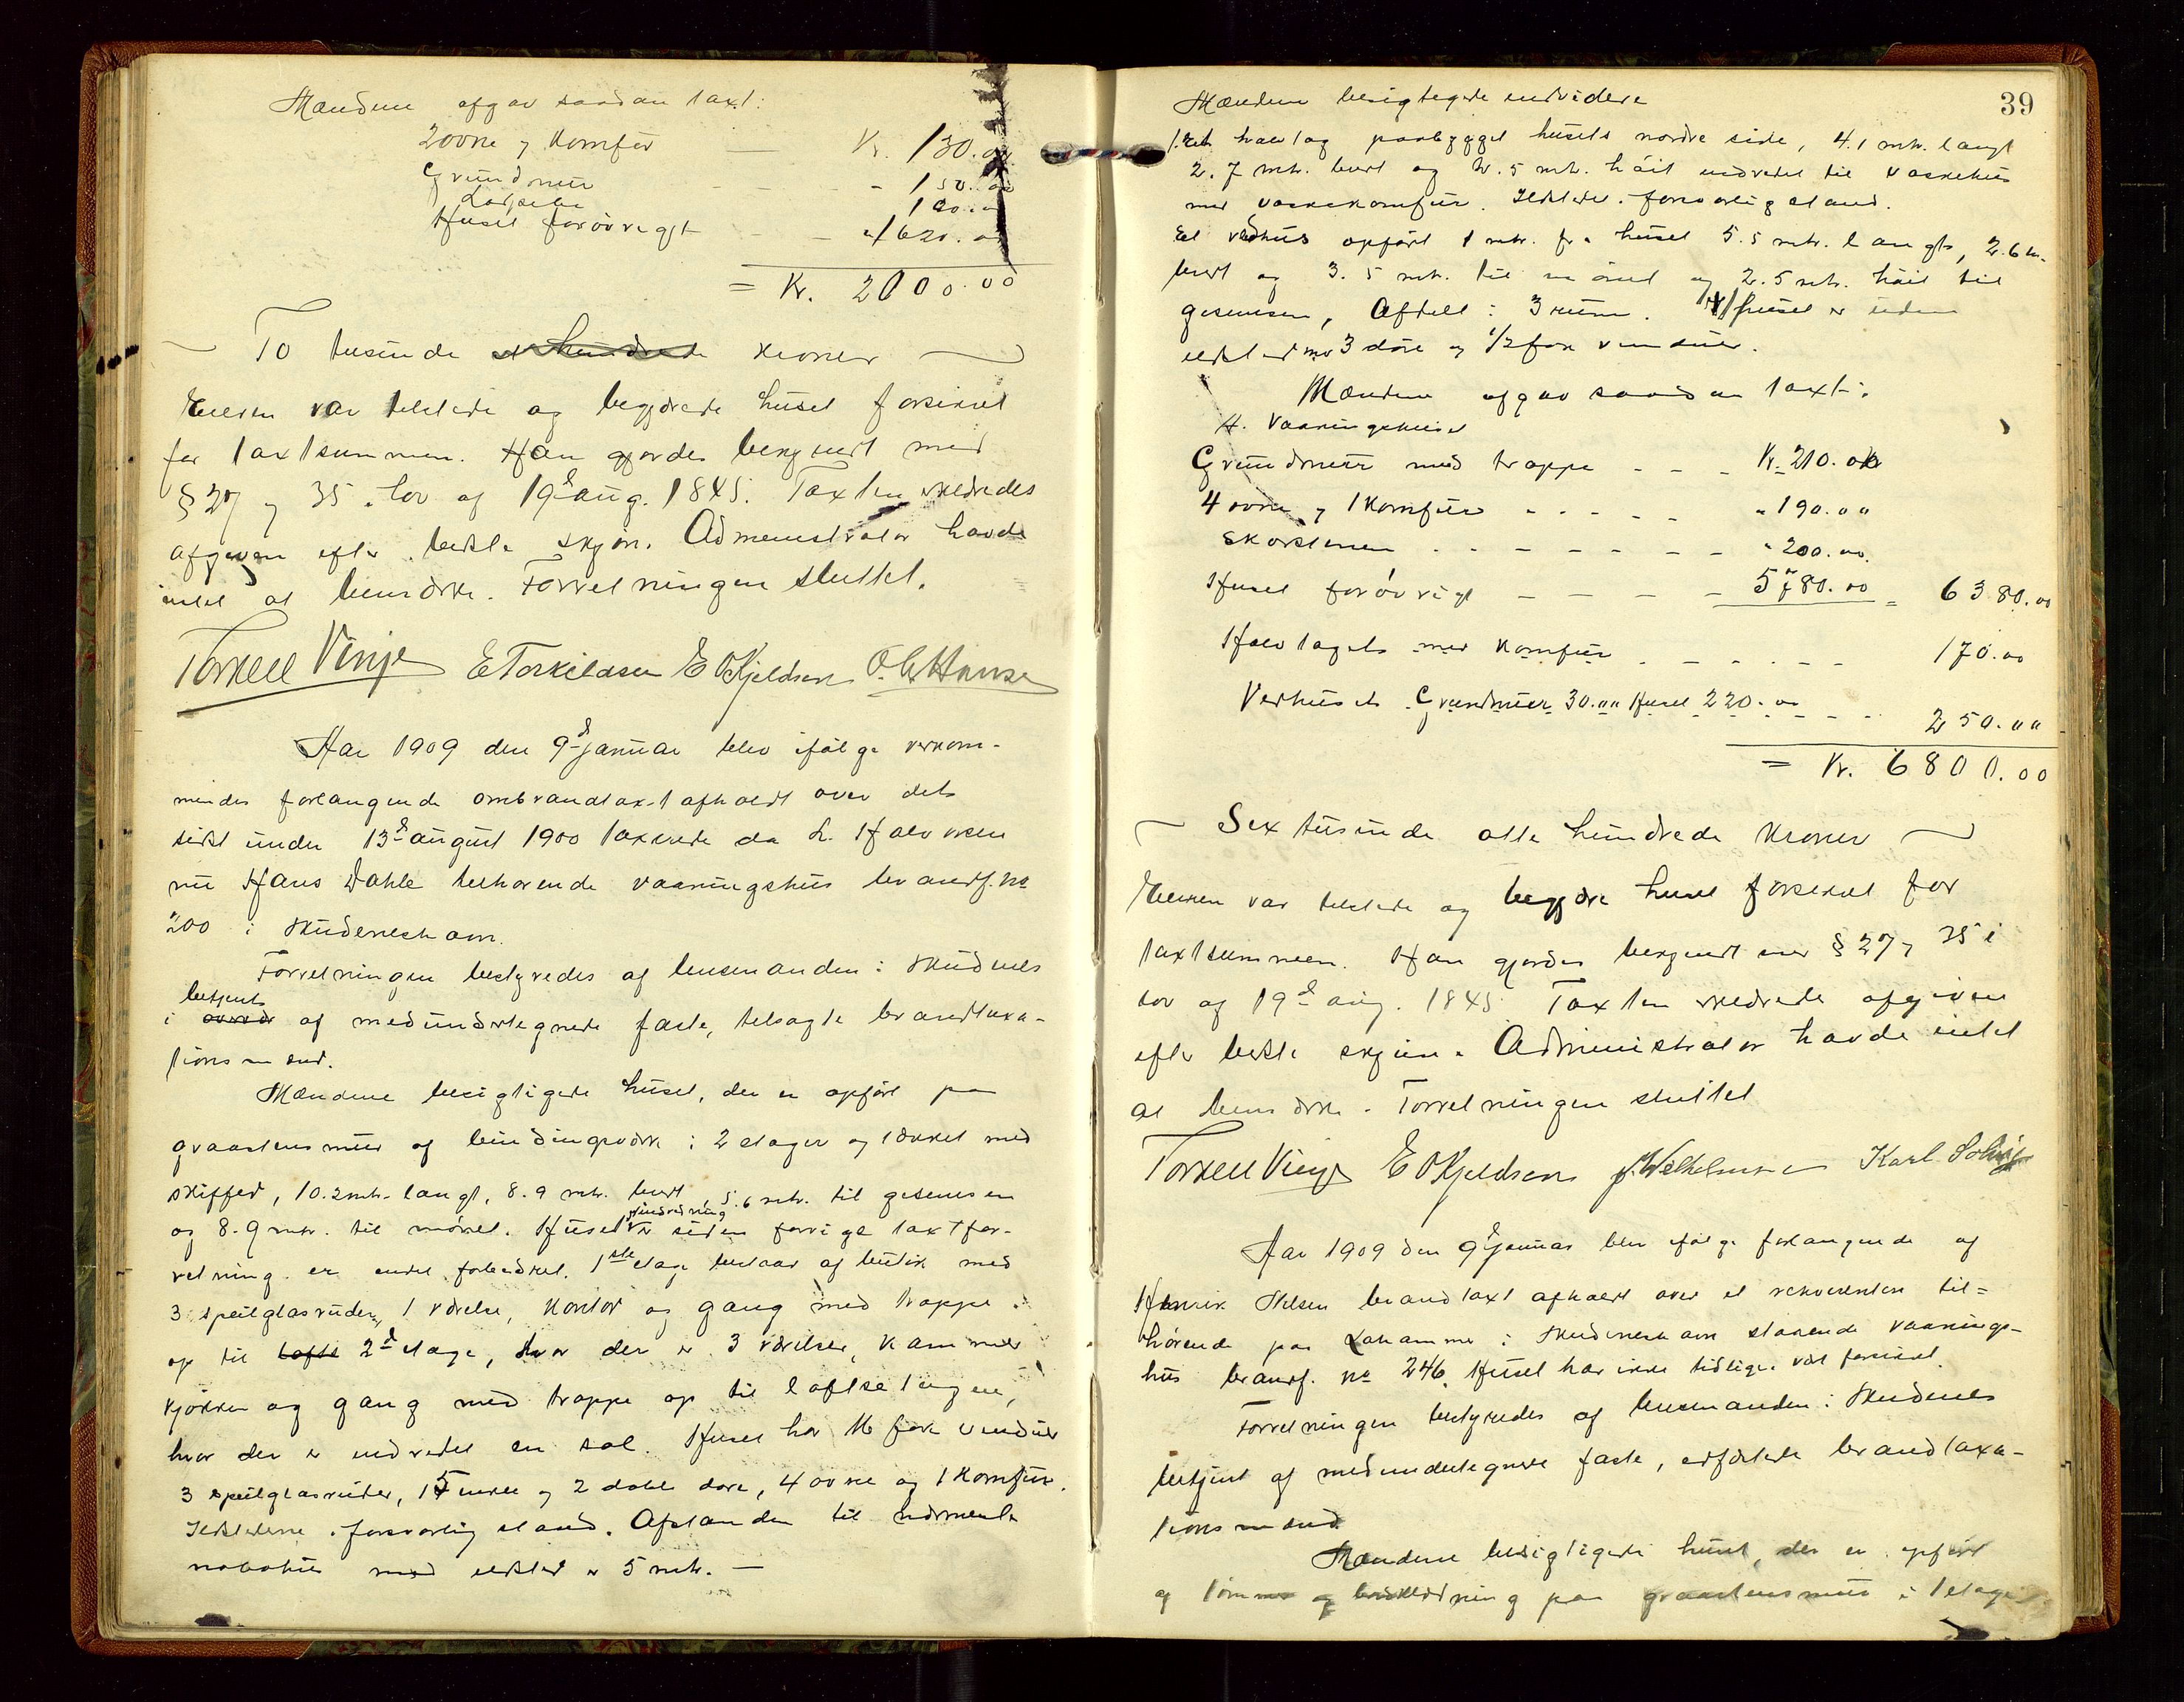 Mændene afgav saadan taxt:
2 ovne og Komfør — Kr. 130.00
Grundmur - - - - 150.00
100.00
Huset forøvrigt - - - 1620.00
= Kr. 2000.00
To tusinde kroner
Eieren var tilstede og begjærede huset forsikret
for taxtsummen. Han gjordes bekjendt med
§ 27 og 35 i lov af 19d aug. 1845. Taxten erklæredes
afgiven efter bedste skjøn. Administrator havde
intet at bemærke. Forretningen sluttet.
Torkell Vinje E Torkildsen E O Kjeldsen O. C. Hansen
Aar 1909 den 9d januar blev ifølge verkom-
mendes forlangende ombrandtaxt afholdt over det
sidst under 13d august 1900 taxerede da L. Halvorsen
nu Hans Dahle tilhørende vaaningshus brandf. No
200 i Skudeneshavn.
Forretningen bestyredes af lensmanden i Skudenes
betjent
i overvær af medundertegnede faste, tilsagte brandtaxa-
tionsmænd.
Mændene besigtigede huset, der er opført paa
graastensmur af bindingsverk i 2 etager og tækket med
skiffer, 10.2 mtr. langt, 8.9 mtr. bredt, 5.6 mtr. til gesimsen
indredning
og 8.9 mtr. til mønet. Husets er siden forrige taxtfor-
retning er endel forbedret. 1ste etage bestaar af butik med
3 speilglasruder, 1 værelse, kontor og gang med trappe
op til lofte 2d etage, hvor der er 3 værelser, kammer
kjøkken og gang med trappe op til loftsetagen,
hvor der er indredet en sal. Huset har 16 fag vinduer
3 speilglasruder, 15 enkle og 2 doble døre, 4 ovne og 1 Komfur.
Ildstederne i forsvarlig stand. Afstanden til nærmeste
nabohus med ildsted er 5 mtr. —
39
Mændene besigtegede endvidere
1. Et halvtag paabygget husets nordre side, 4.1 mtr. langt
2.7 mtr. bredt og 2.5 mtr. høit indredet til vaskehus
med vaskekomfur. Ildstedet i forsvarlig stand.
Et vedhus opført 1 mtr. fra huset 5.5 mtr. langt, 2.6 m.
bredt og 3.5 mtr. til mønet og 2.5 mtr. høit til
gesimsen, Afdelt i 3 rum. huset er uden
ildsted med 3 døre og 1/2 fag vinduer.
Mændene afgav saadan taxt:
A. Vaaningshuset
Grundmur med trappe - - - Kr. 210.00
4 ovne og 1 Komfur - - - - - " 190.00
Skorstenen - - - - - - - " 200.00
Huset forøvrigt - - - - 5780.00 = 6380.00
Halvtagets med Komfur - - - - - - 170.00
Vedhusets Grundmur 30.00 Huset 220.00 - - - 250.00
= Kr. 6800.00
Sex tusinde otte hundrede kroner
Eieren var tilstede og begjære huset forsikret for
taxtsummen. Han gjordes bekjendt med § 27 og 35 i
lov af 19d aug. 1845. Taxten erklærede afgiven
efter bedste skjøn. Administrator havde intet
at bemærke. Forretningen sluttet
Torkell Vinje E O Kjeldsen J. Wilhelmsen Karl Solvig
Aar 1909 den 9d januar blev ifølge forlangende af
Henrik Nilsen brandtaxt afholdt over et rekvirenten til=
hørende paa i Skudeneshavn staaende vaanings-
hus brandf. No 246. Huset har ikke tidligere vært forsikret.
Forretningen bestyredes af lensmanden i Skudenes
betjent af medundertegnede faste, edfæstede brandtaxa-
tionsmænd.
Mændene besigtigede huset, der er opført
af tømmer og bordklædning paa graastensmur i 1 etage